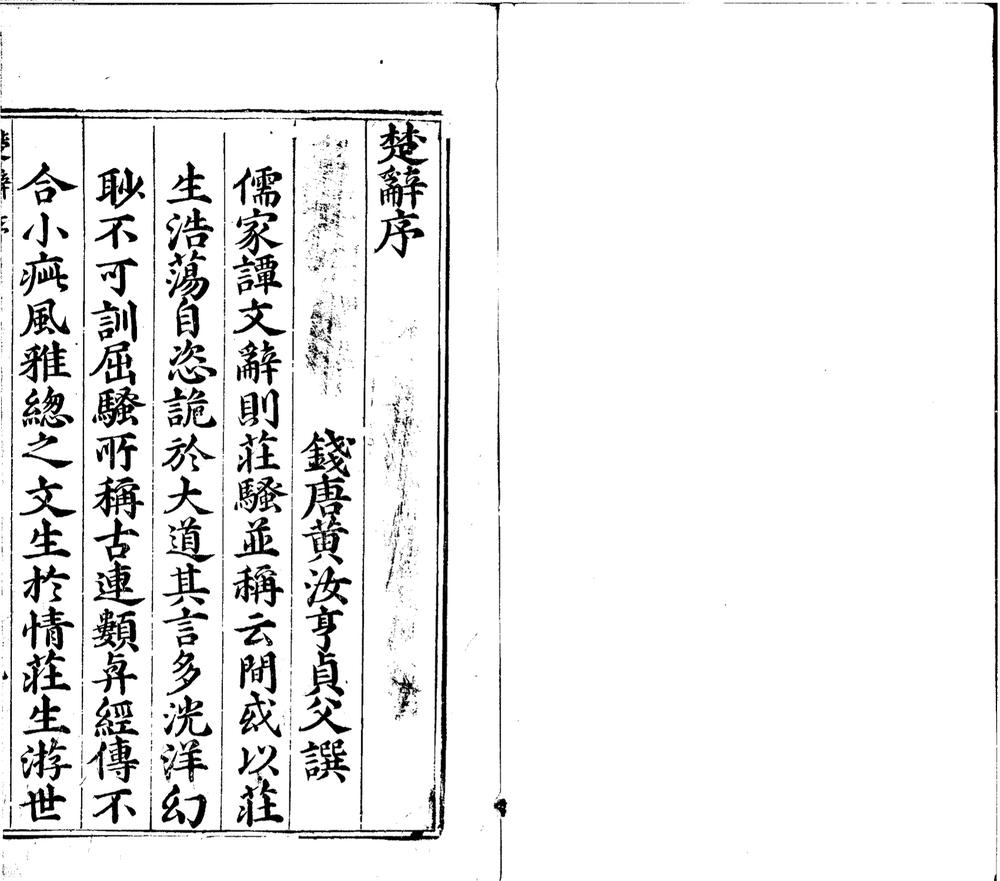 楚辭序
錢唐黃汝亨貞父譔
儒家譚文辭則莊騷並稱云間或以莊
生浩蕩自恣詭於大道其言多洸洋幻
眇不可訓屈騷所稱古連類弁經傳不
合小疵風雅緫之文生於情莊生游世
楚辭序